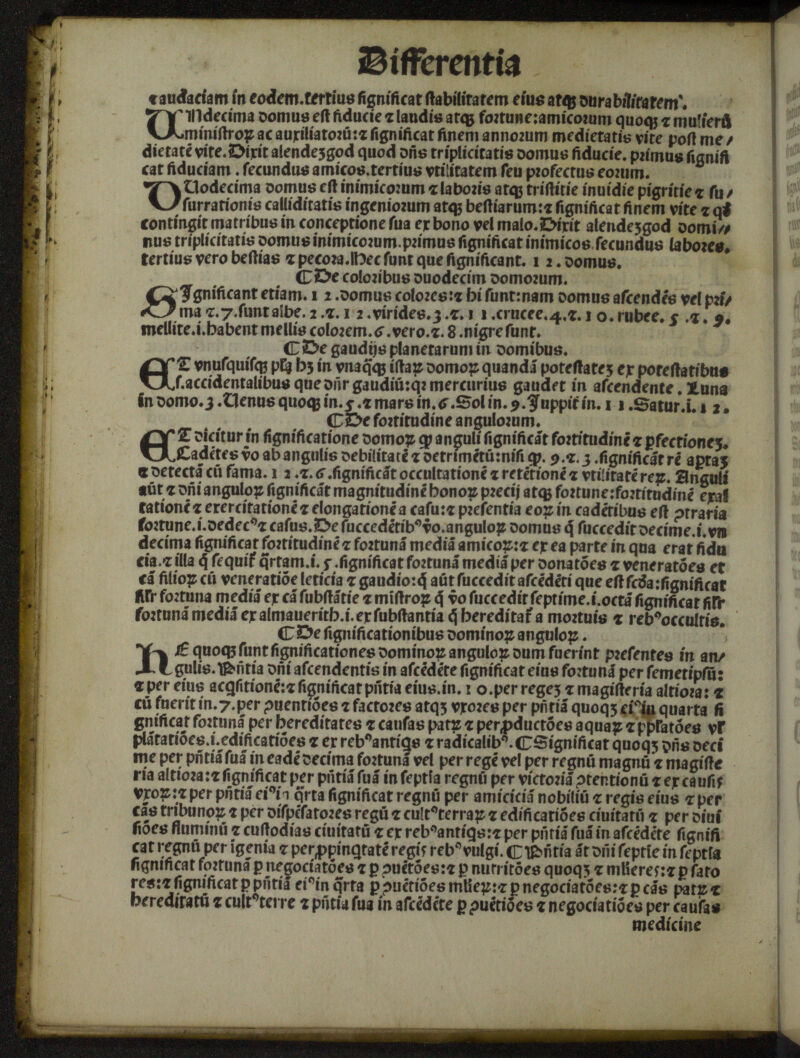 Differentia
⁊ audaciam in eodem.tertius significat stabilitatem eius atqꝫ durabilitatem.
VNdecima domus est fiducie ⁊ laudis atqꝫ fortune:amicorum quoqꝫ ⁊ mulierū
ministroꝝ ac auxiliatorū:⁊ significat finem annorum medietatis vite post me/
dietatē vite.Dixit alendezgod quod dn̄s triplicitatis domus fiducie. primus signifi
cat fiduciam . secundus amicos.tertius vtilitatem seu profectus eorum.
DUodecima domus est inimicorum ⁊ laboris atqꝫ tristitie inuidie pigritie ⁊ su/
surrationis calliditatis ingeniorum atqꝫ bestiarum:⁊ significat finem vite ⁊ qđ
contingit matribus in conceptione sua ex bono vel malo.Dixit alendezgod domi//
nus triplicitatis domus inimicorum.primus significat inimicos.secundus labores.
tertius vero bestias ⁊ pecora.Hec sunt que significant. 1 2 . domus.
¶De coloribus duodecim domorum.
SIgnificant etiam. 1 2 .domus colores:⁊ hi sunt:nam domus ascendēs vel pri/
ma ⁊.7.sunt albe. 2 .⁊. 1 2 .virides.3.⁊. 1 1 .crucee.4.⁊. 1 0 . rubee. 5 .⁊. 9.
mellite.i.habent mellis colorem.6.vero.⁊.8.nigre sunt.
¶De gaudijs planetarum in domibus.
ET vnusquisqꝫ plꝫ hꝫ in vnaq̄qꝫ istaꝝ domoꝝ quandā potestateꝫ ex potestatibus
.s.accidentalibus que dn̄r gaudiū:qꝛ mercurius gaudet in ascendente . Luna
in domo.3.Uenus quoqꝫ in.5.⁊ mars in.6.Sol in. 9.Juppit̄ in. 1 1 .Satur.i. 1 2 .
¶De fortitudine angulorum.
ET dicitur in significatione domoꝝ ꝙ anguli significāt fortitudinē ⁊ pfectioneꝫ.
Cadētes v̄o ab angulis debilitatē ⁊ detrimētū:nisi ꝙ. 9.⁊. 3 .significāt rē aptaꝫ
⁊ detectā cū fama. 1 2 .⁊.6.significāt occultationē ⁊ retētionē ⁊ vtilitatē reꝝ. Anguli
aūt ⁊ dn̄i anguloꝝ significāt magnitudinē honoꝝ precij atqꝫ fortune:fortitudinē exal
tationē ⁊ exercitationē ⁊ elongationē a casu:⁊ presentia eoꝝ in cadētibus est ꝯtraria
fortune.i.dedecꝰ ⁊ casus.De succedētibꝰ v̄o.anguloꝝ domus q̄ succedit decime.i.vn
decima significat fortitudinē ⁊ fortunā mediā amicoꝝ:⁊ ex ea parte in qua erat fidu
cia.⁊ illa q̄ sequit̄ q̄rtam.i. 5 .significat fortunā mediā per donatōes ⁊ veneratōes et
cā filioꝝ cū veneratiōe leticia ⁊ gaudio:q̄ aūt succedit ascēdēti que est scđa:significat
sil̄r fortuna mediā ex cā substātie ⁊ mīstroꝝ q̄ v̄o succedit septime.i.octā significat sil̄r
fortunā mediā ex almauerith.i.ex substantia q̄ hereditat̄ a mortuis ⁊ rebꝰ occultis.
¶De significationibus dominoꝝ anguloꝝ .
HE quoqꝫ sunt significationes dominoꝝ anguloꝝ dum fuerint presentes in an/
gulis. Pn̄tia dn̄i ascendentis in ascēdēte significat eius fortunā per semetipsū:
⁊ per eius acq̄sitionē:⁊ significat pn̄tia eius.in. 1 0 .per regeꝫ ⁊ magisteria altiora: ⁊
cū fuerit in.7.per ꝯuentiōes ⁊ factores atqꝫ vxores per pn̄tiā quoqꝫ eiꝰ in quarta si
gnificat fortunā per hereditates ⁊ causas patꝝ ⁊ per ꝓductōes aquaꝝ ⁊ ppl̄atōes vl̄
plātatiōes.i.edificatiōes ⁊ ex rebꝰ antiq̄s ⁊ radicalibꝰ.¶Significat quoqꝫ dn̄s deci
me per pn̄tiā suā in eadē decima fortunā vel per regē vel per regnū magnū ⁊ magiste
ria altiora:⁊ significat per pn̄tiā suā in septīa regnū per victoriā ꝯtentionū ⁊ ex causis
vxoꝝ:⁊ per pn̄tiā eiꝰ in q̄rta significat regnū per amiciciā nobiliū ⁊ regis eius ⁊ per
cās tribunoꝝ ⁊ per dispēsatores regū ⁊ cultꝰ terraꝝ ⁊ edificatiōes ciuitatū ⁊ per diui
siōes fluminū ⁊ custodias ciuitatū ⁊ ex rebꝰ antiqis:⁊ per pn̄tiā suā in ascēdēte signifi
cat regnū per igenia ⁊ per ꝓpinqtatē regis rebꝰ vulgi.¶Pn̄tia āt dn̄i septīe in septīa
significat fortunā p negociatōes ⁊ p ꝯuētōes:⁊ p nutritōes quoqꝫ ⁊ ml̄ieres:⁊ p fato
res:⁊ significat p pn̄tiā eiꝰ in q̄rta p ꝯuētiōes ml̄ieꝝ:⁊ p negociatōes:⁊ p cās patꝝ ⁊
hereditatū ⁊ cultꝰ terre ⁊ pn̄tia sua in ascēdēte p ꝯuētiōes ⁊ negociatiōes per causas
medicine